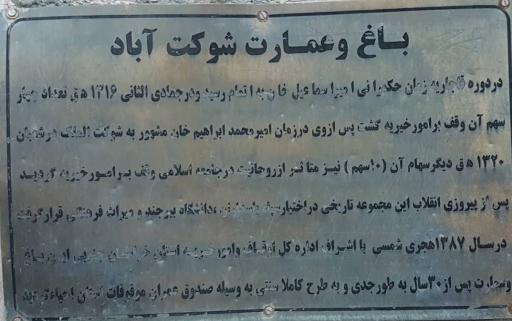 باغ وعمارت شوکت آباد
در دوره قاجاریه زمان حکمرانی امیر اسماعیل خان به اتمام رسید ودر جمادی الثانی ۱۳۱۶ ه.ق تعداد چهار
سهم آن وقف بر امور خیریه گشت پس از وی در زمان امیر محمد ابراهیم خان مشهور به شوکت الملک در شعبان
۱۳۲۰ ه ق دیگر سهام آن (۱۰سهم) نیز متاثر از روحانیت در جامعه اسلامی وقف بر امور خیریه گردید
پس از پیروزی انقلاب این مجموعه تاریخی در اختیار دانشگاه بیرجند و میراث فرهنگی قرار گرفت
در سال ۱۳۸۷ هجری شمسی با اشراف اداره کل اوقاف وامور خیریه استان خراسان جنوبی این باغ
وعمارت پس از ۳۰سال به طور جدی و به طرح کاملا سنتی به وسیله صندوق عمران موقوفات استان احیاء گردید